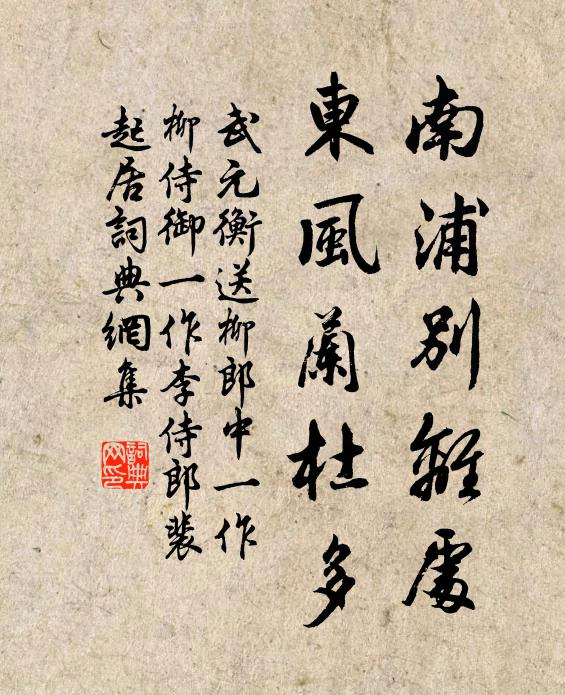 南浦別離處
東風蘭杜多
武元衡送柳郎中一作
柳侍御一作李侍郎裴
起居詞典網集
詞典網印